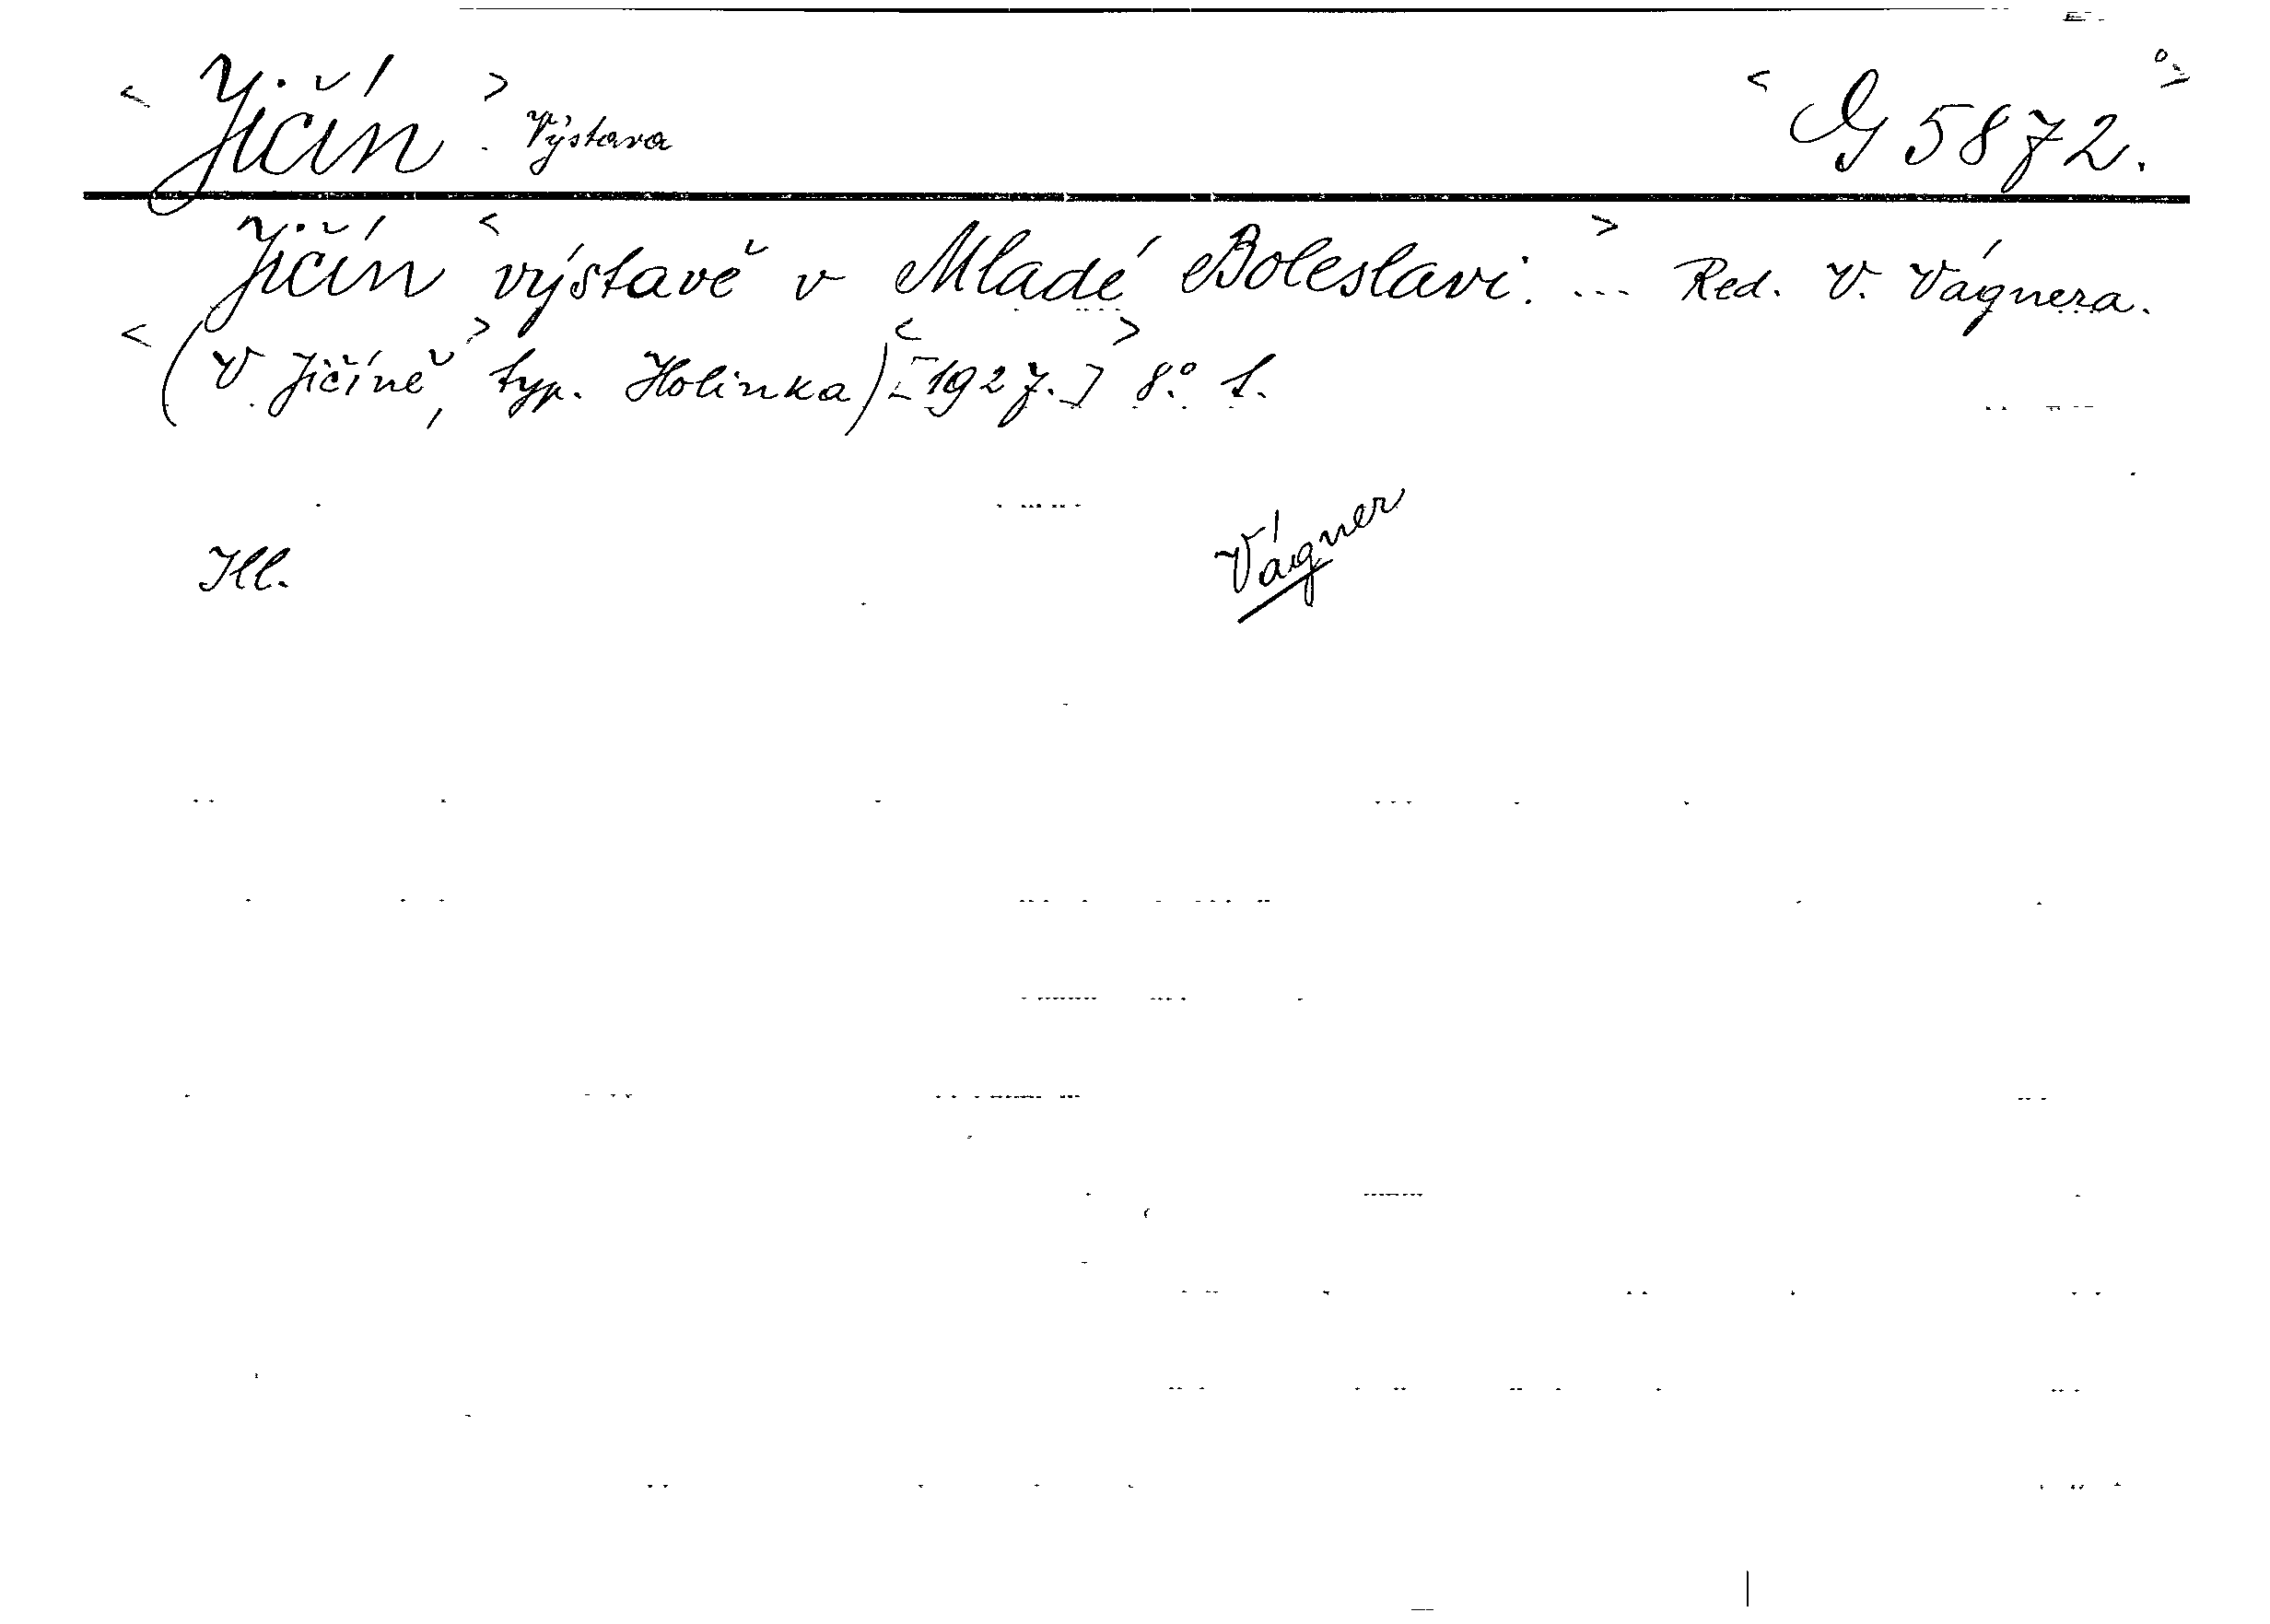 < Jičín > . Výstava < G 5872. >
Jičín < výstavě v Mladé Boleslavi. > ... Red. V. Vágnera.
< (V Jičíně, > typ. Holinka) < [1927.] > 8.° 1.
Ill.
Vágner